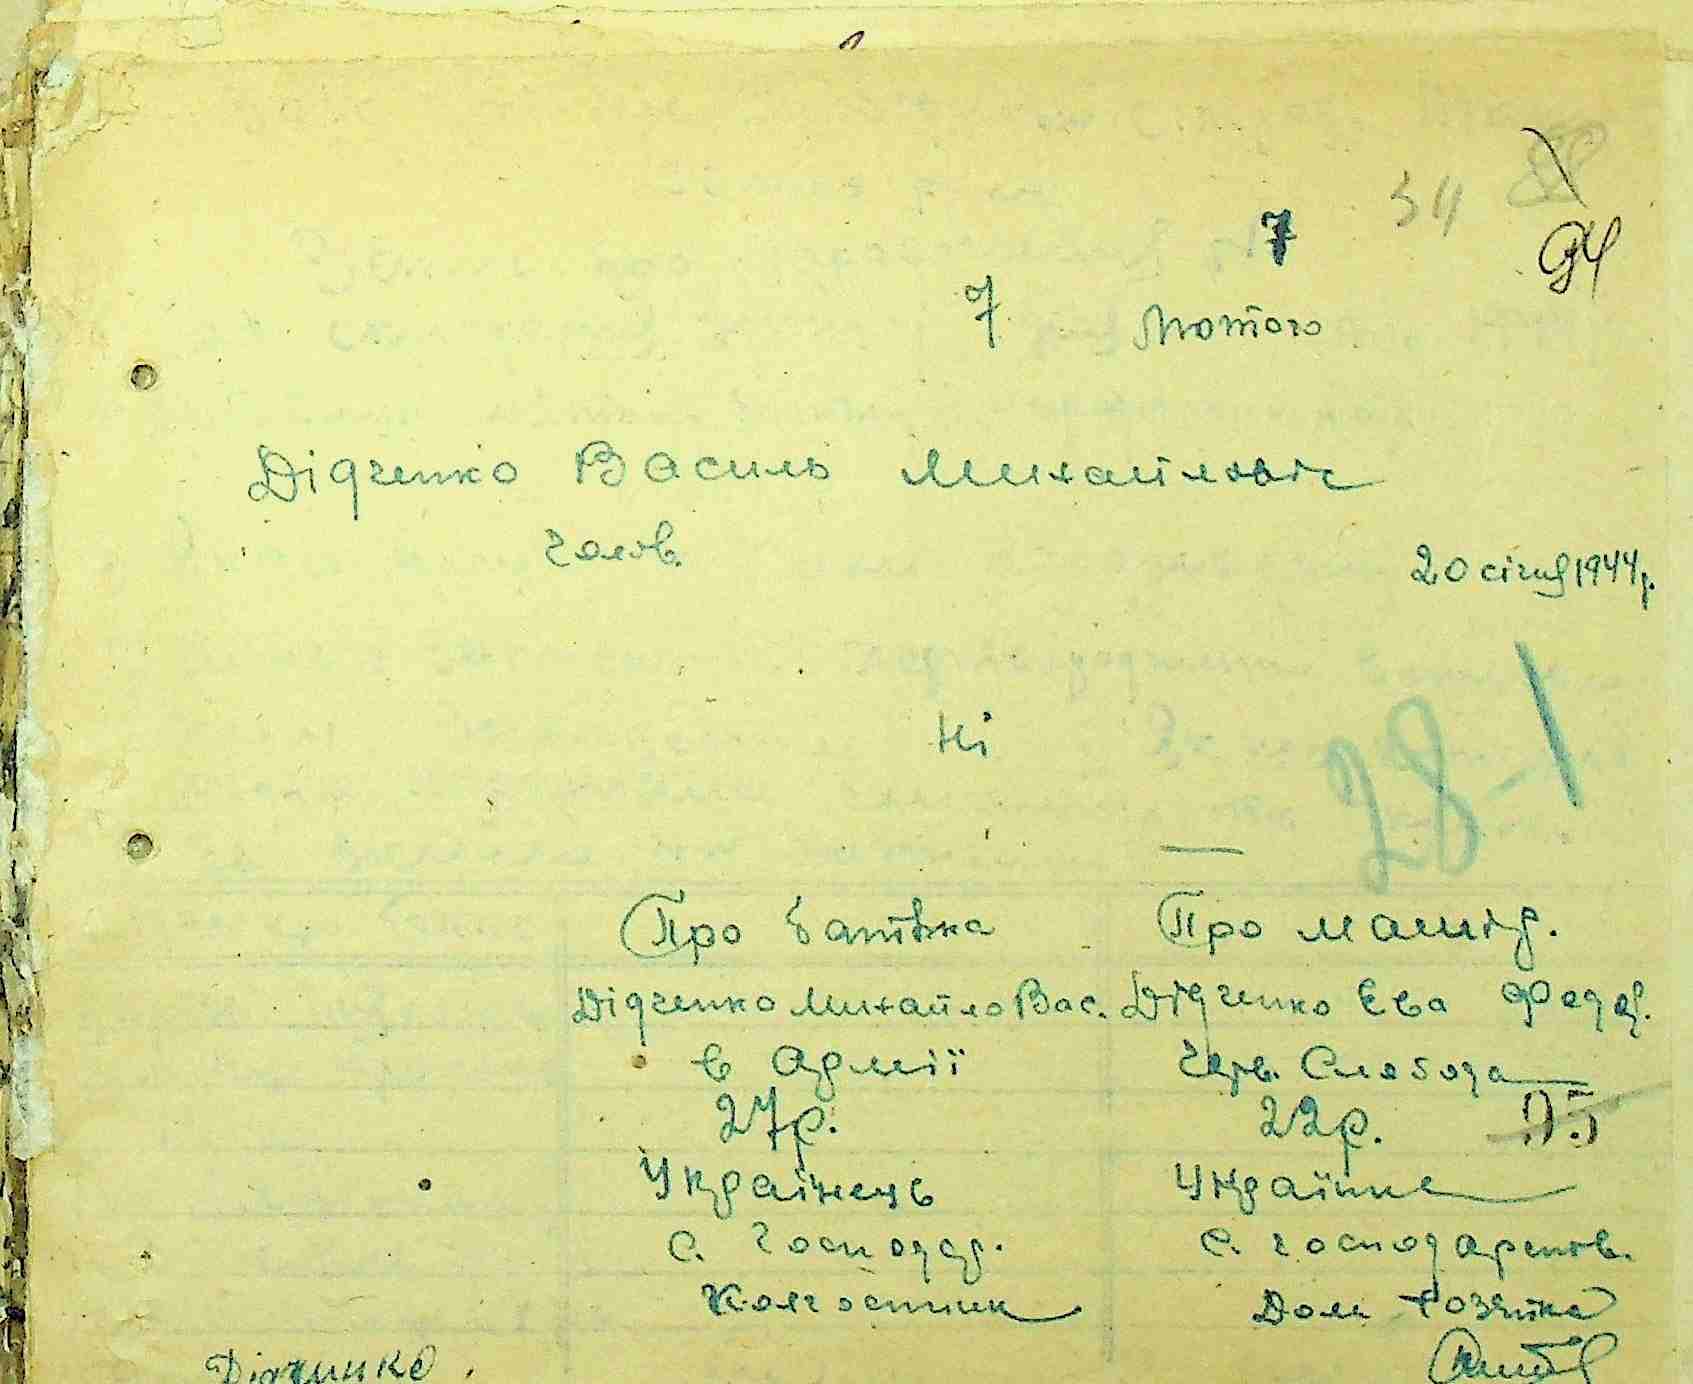 7 34 94
7 Лютого
Дідченко Василь Михайлович
Чолов. 20 січня 1944р.
Ні
28-1
—
Про батька Про матір.
Дідченко Михайло Вас. Дідченко Ева Федор.
в Армії Черв. Слобода
27р. 22р.
Українець Українка
С. Господар. С. господарств.
Колгоспник Дом хозяйка
Дідчинко.